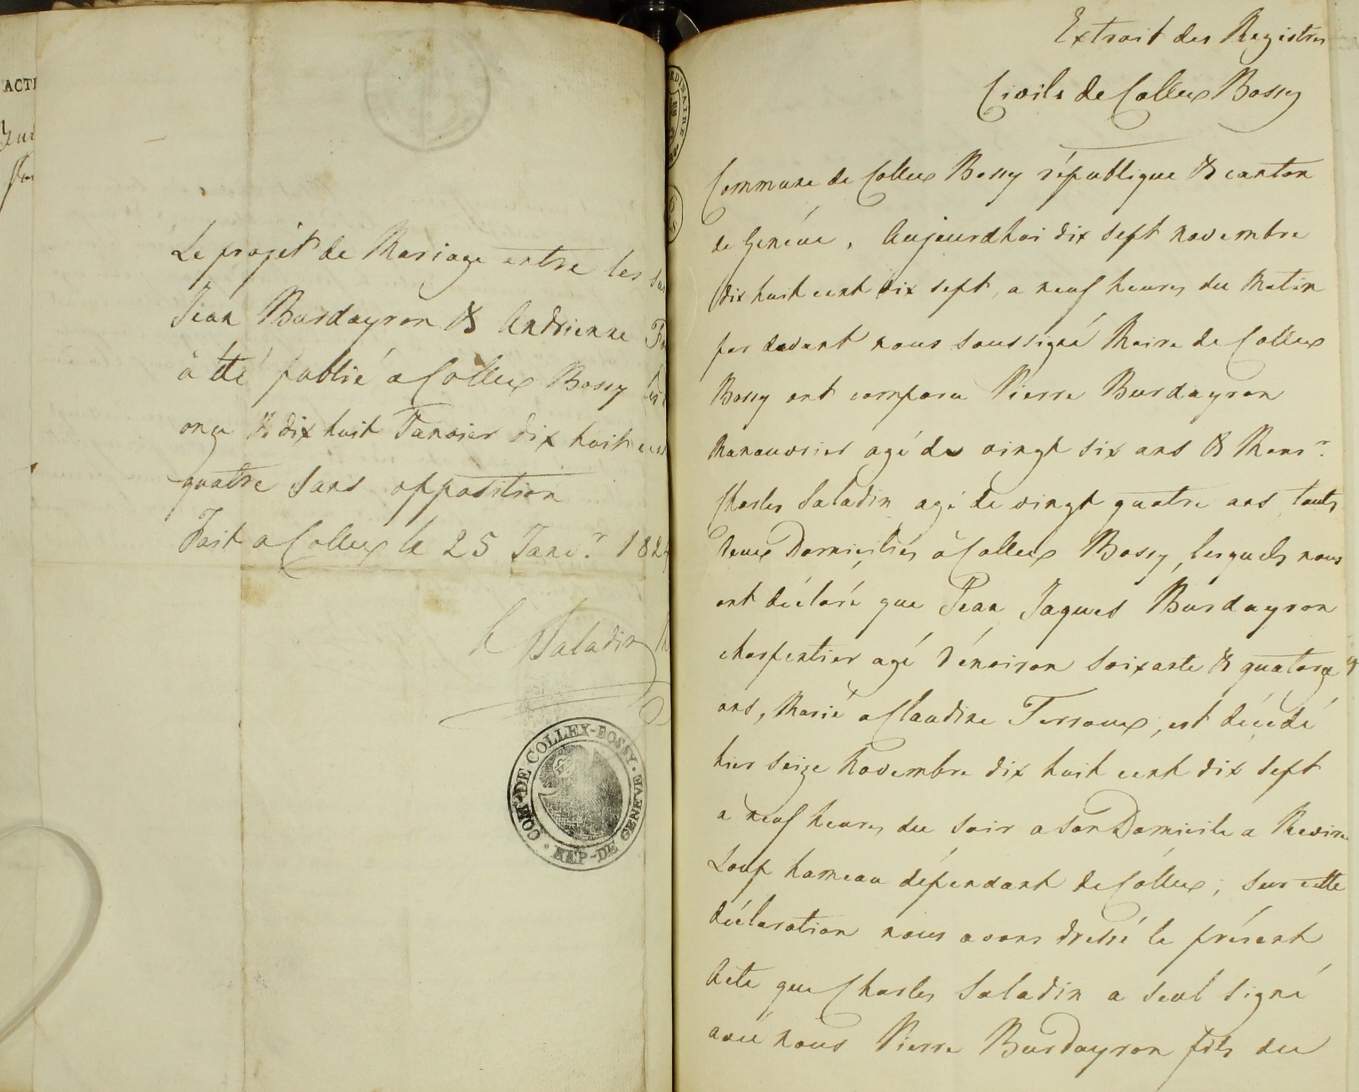 ACTE
Le projet de Mariage entre les
Jean Burdayron & Andrienne
à été publié a Collex Bossy les
onze & dix huit Janvier dix huit cent
quatre sans opposition
Fait a Collex le 25 Janv.r 182
Saladin
COM-DE COLLEX-BOSSY. REP-DE GENEVE
Extrait des Registres
Civils de Collex Bossy
Commune de Collex Bossy république & canton
de Genéve, Aujourdhui dix sept novembre
dix huit cent dix sept, a neuf heures du Matin
par devant nous soussigné Maire de Collex
Bossy ont comparu Pierre Burdayron
Manouvrier agé de vingt six ans & Mons.r
Charles Saladin agé de vingt quatre ans touts
deux Domiciliés à Collex Bossy, lesquels nous
ont déclaré que Jean Jaques Burdayron
charpentier agé d'énviron soixante & quatorze
ans, Marié a Claudine Terroux, est décédé
hier seize Novembre dix huit cent dix sept
a neuf heures du soir a son Domicile a
Loup hameau dépendant de Collex, sur cette
déclaration nous avons dressé le présent
Acte que Charles Saladin a seul signé
avec nous Pierre Burdayron fils du